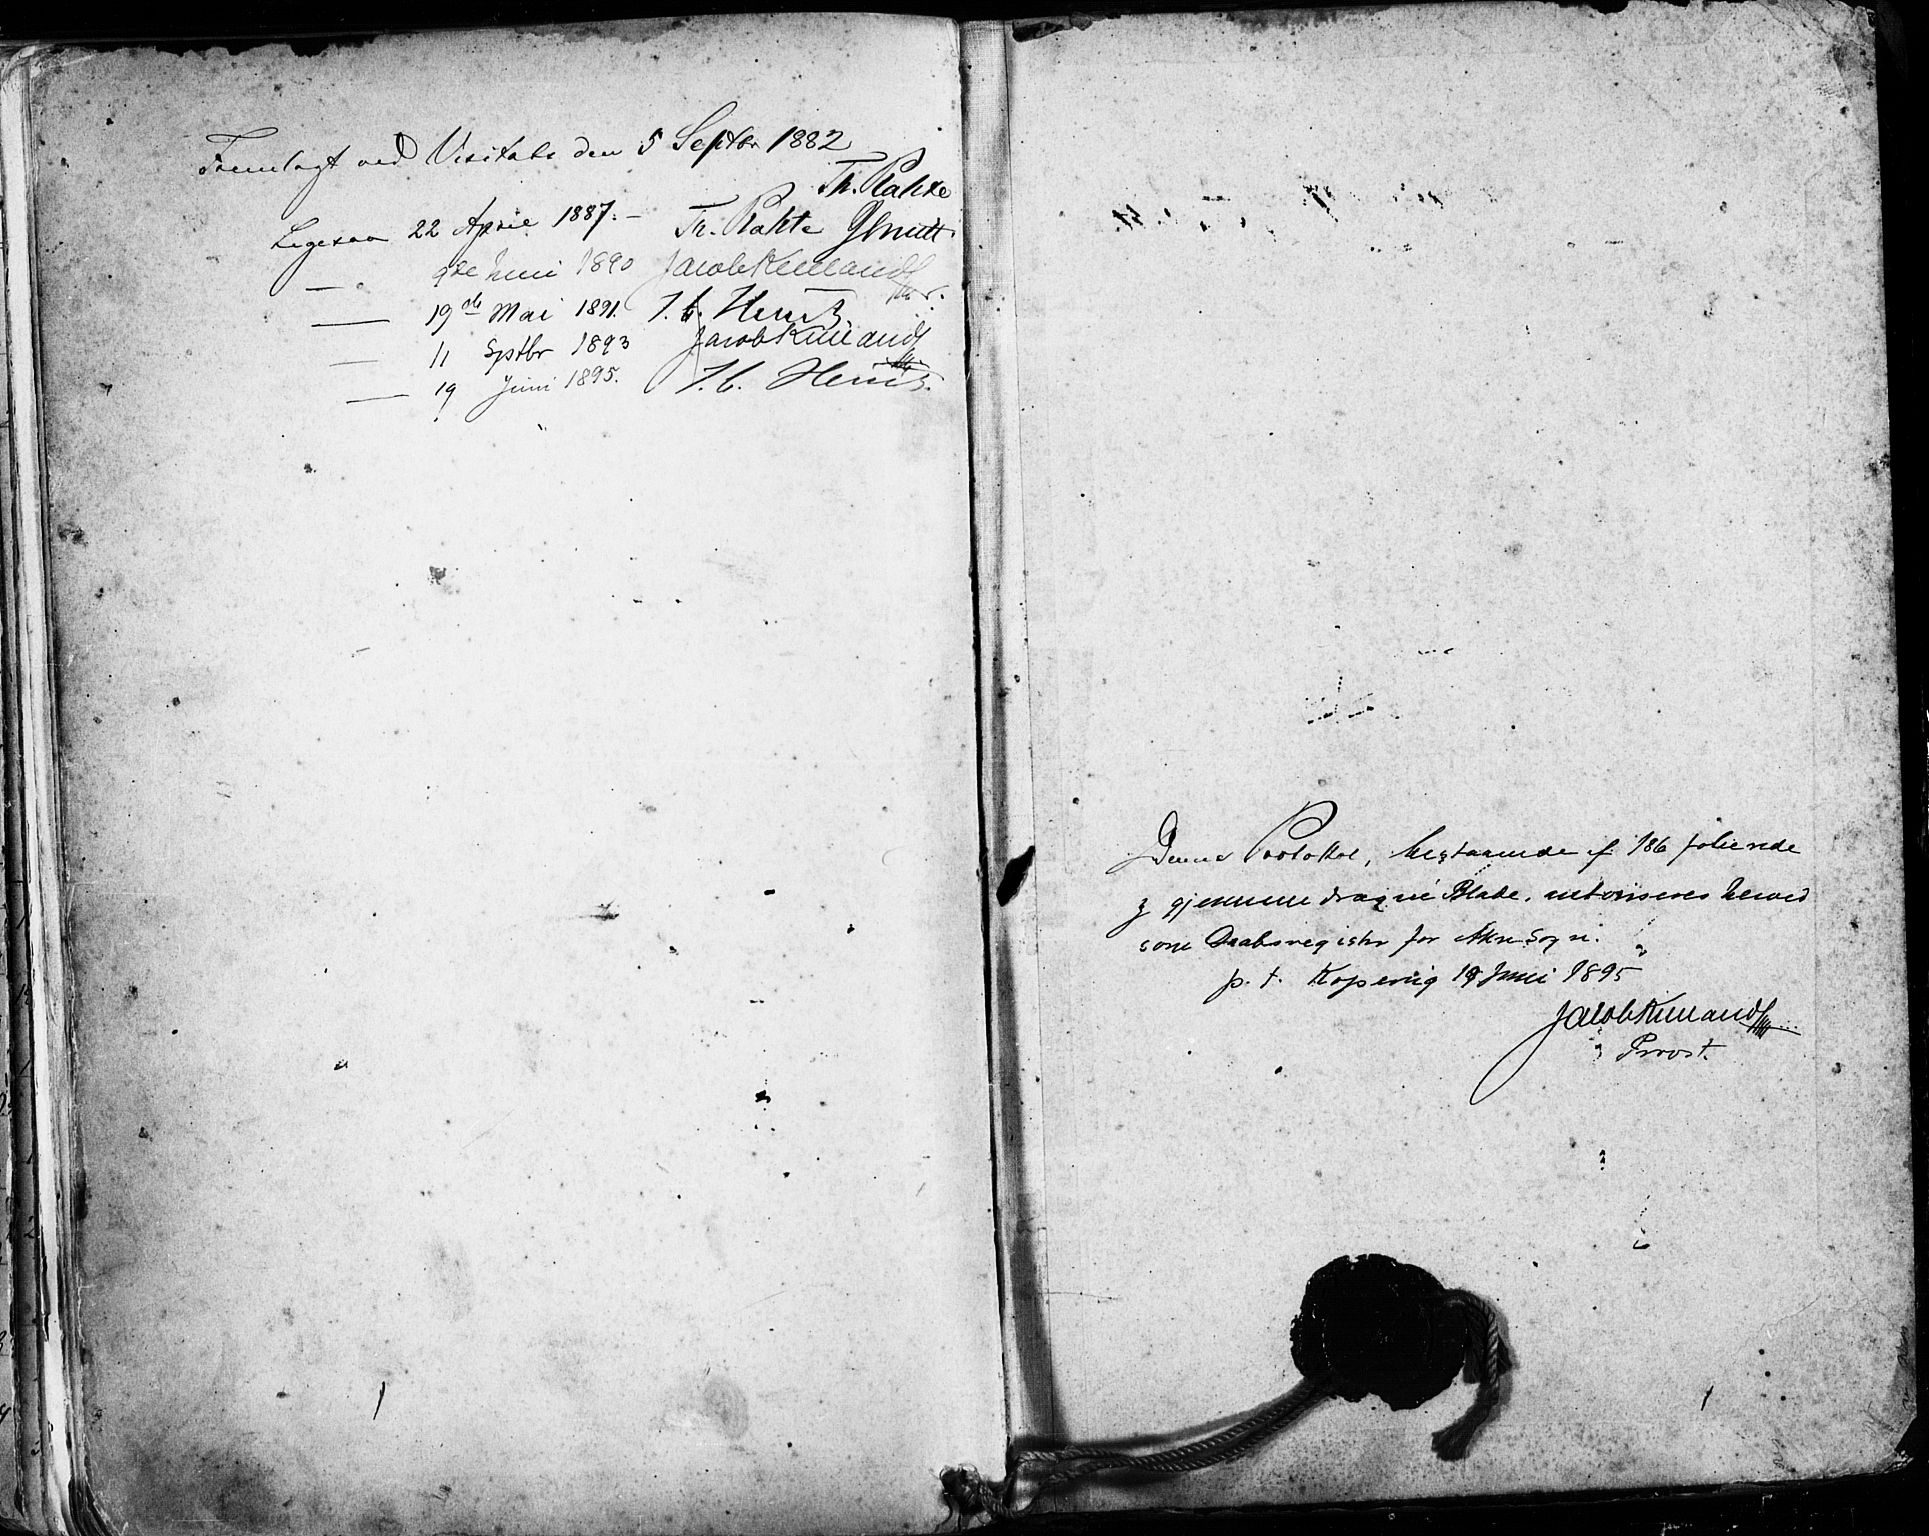 Fremlagt ved Visitats den 5 Septbr 1882
Th. Rahte
Ligesaa 22 April 1887. — Th. Rahte
— 9de Juni 1890 Jacob Kielland
— 19de Mai 1891. J. C. Heuch.
— 11 Septbr 1893 Jacob Kielland
— 19 Juni 1895. J. C. Heuch.
Denne Protokol, bestaaende af 186 folierede
og gjennemdragne Blade, autoriseres herved
som Daabsregister for Akre Sogn.
p. t. Kopervig 19 Juni 1895
Jacob Kielland
Provst.